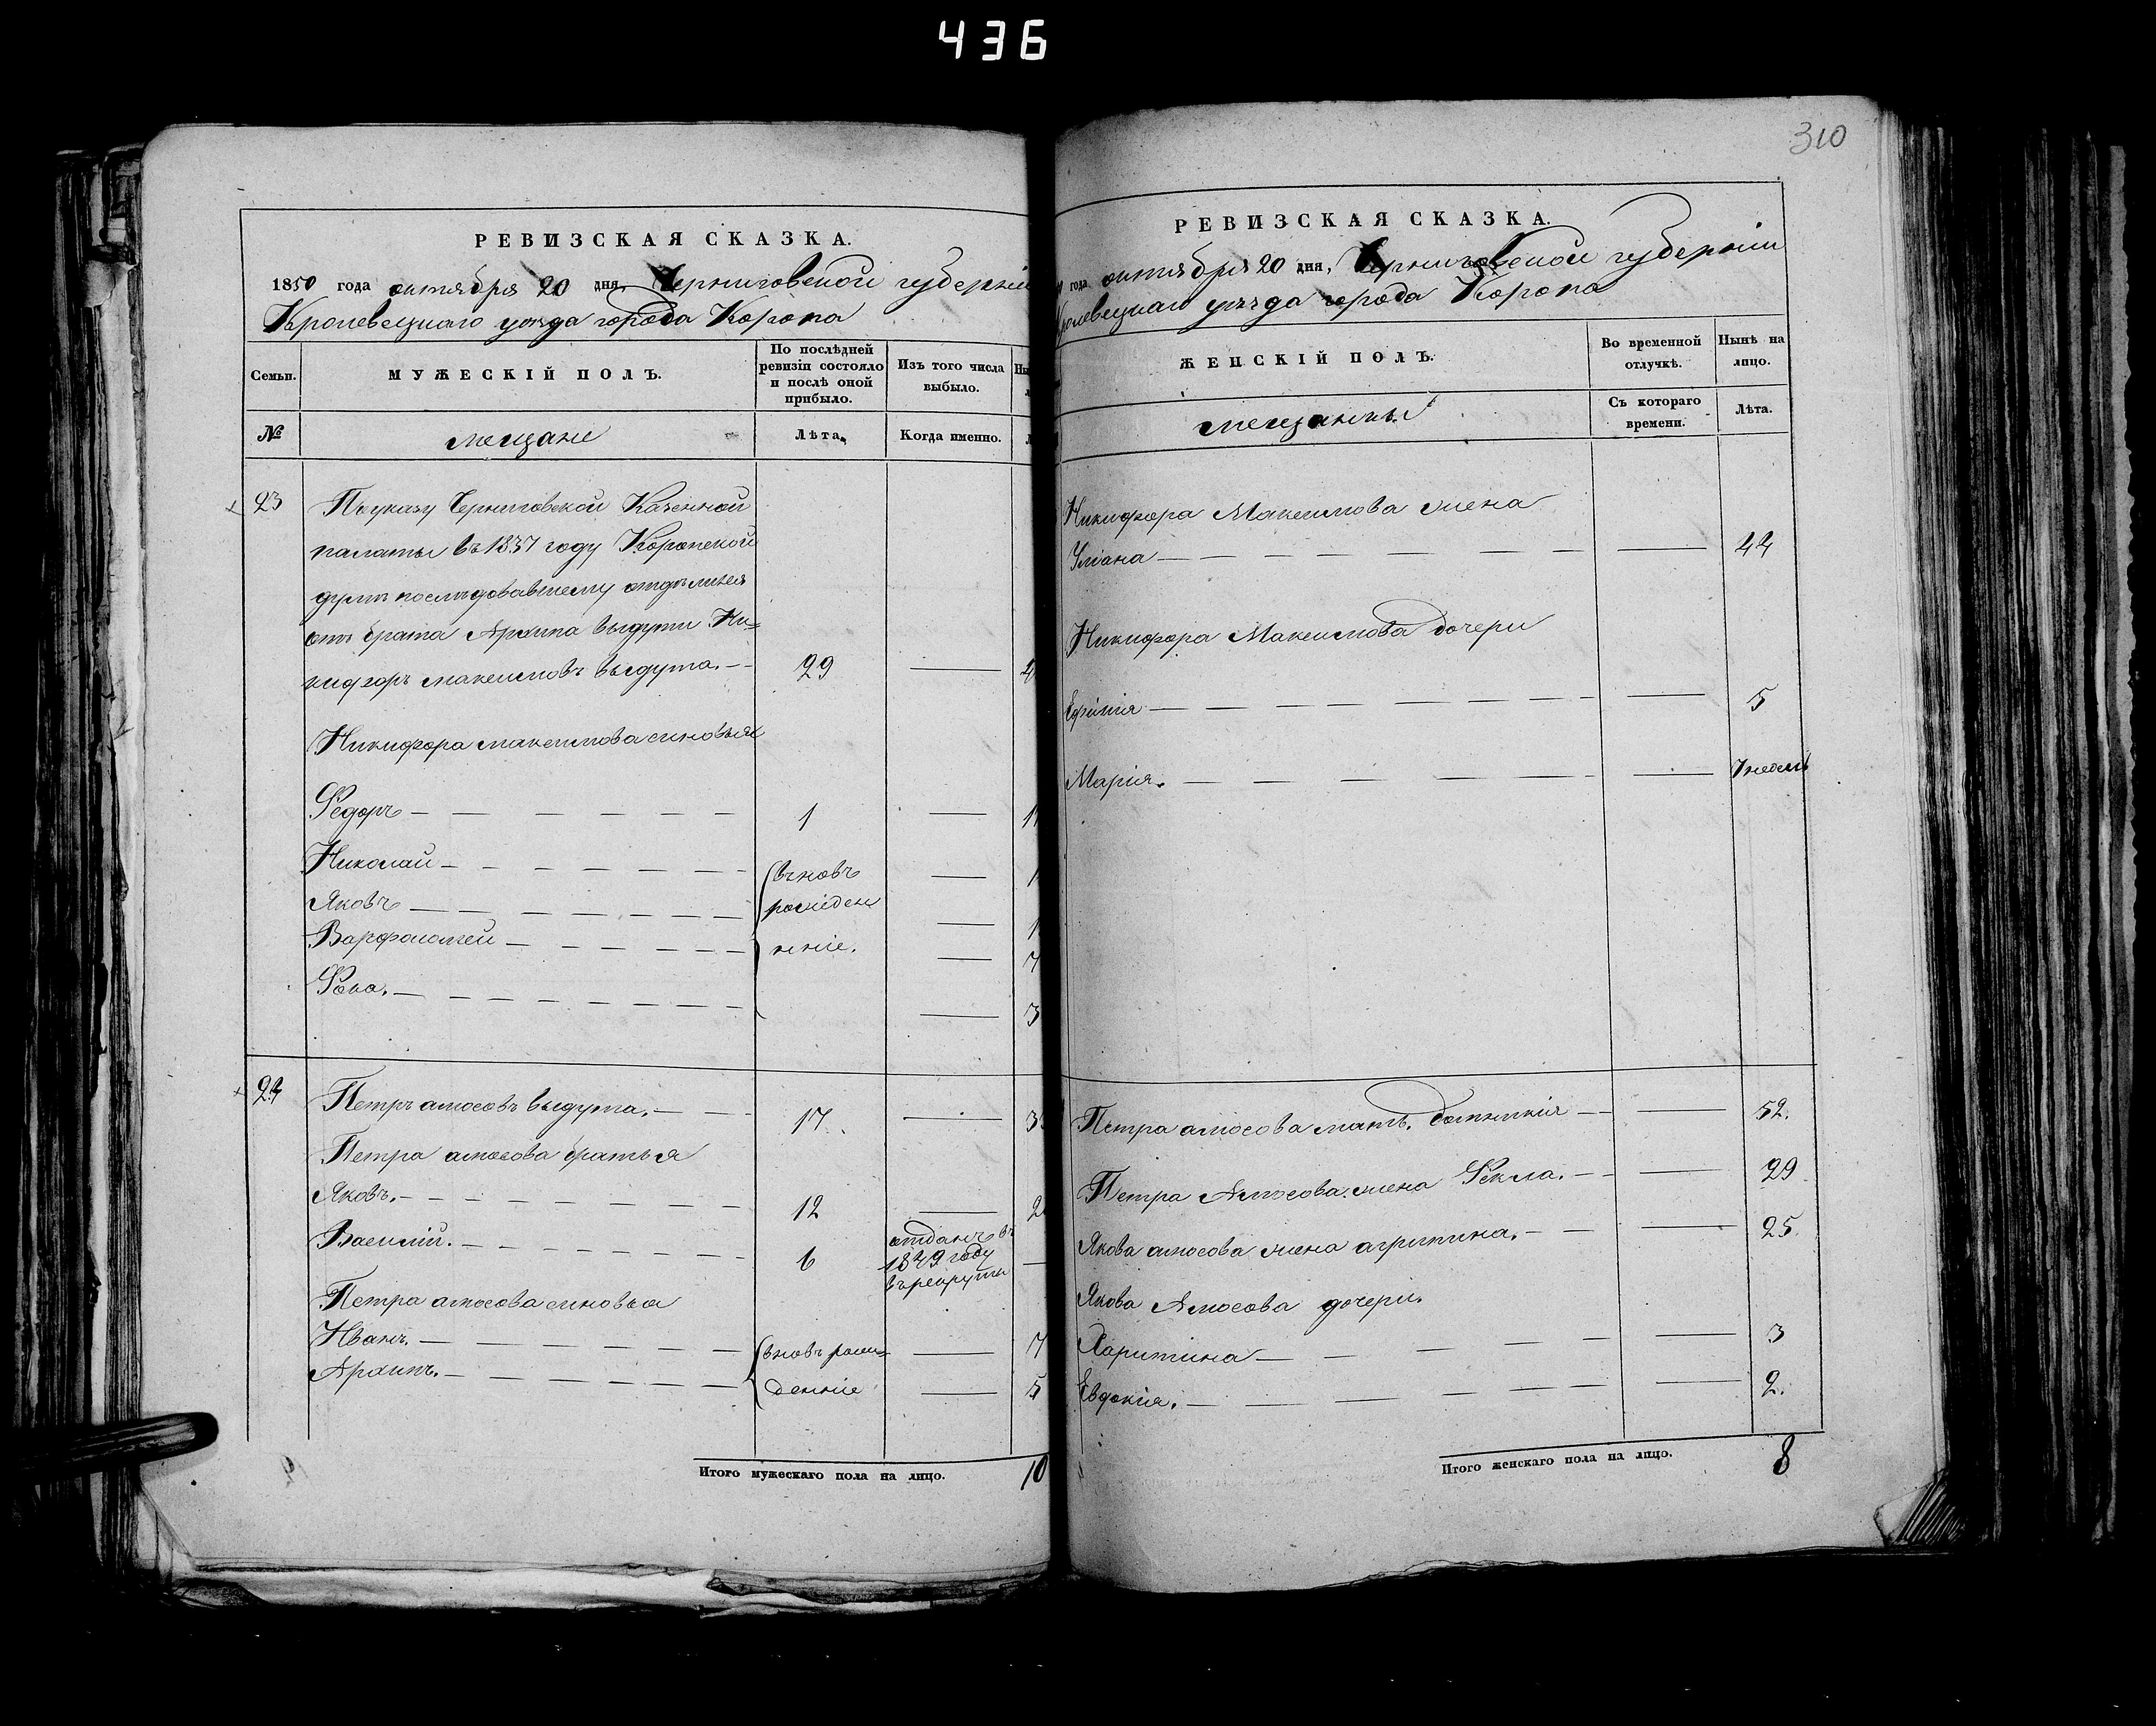 436
310
РЕВИЗСКАЯ СКАЗКА.
1850 года октября 20 дня, Черниговской губерніи
Кролевецкаго уѣзда города Коропа
Семьи.
МУЖЕСКІЙ ПОЛЪ.
По послѣдней ревизіи состояло и послѣ оной прибыло.
Изъ того числа выбыло.
№
мещане
Лѣта.
Когда именно.
23
По указу Черниговской Казенной
палаты въ 1837 году Коропской
думѣ последовавшему отделился
отъ брата Архипа Выдути Ни=
кифоръ Максимовъ Выдута. — 29 —
Никифора Максимова сыновья
Федоръ — 1 —
Николай — вновь —
Яковъ — рожден —
Варфоломей — нніе. — 7
Фока. — — 3
24
Петръ Амосовъ Выдута. — 17 —
Петра Амосова братья
Яковъ. — 12 —
Василій. — 6 отданъ въ
1849 году
въ рекруты —
Петра Амосова сыновья
Иванъ. — вновь рож= — 7
Архипъ. — денніе — 5
Итого мужескаго пола на лицо. 10
РЕВИЗСКАЯ СКАЗКА.
года октября 20 дня, Черниговской губерніи
Кролевецкаго уѣзда города Коропа
ЖЕНСКІЙ ПОЛЪ.
Во временной отлучкѣ.
Нынѣ на лицо.
мещанки
Съ котораго времени.
Лѣта.
Никифора Максимова жена
Уліана — — 44
Никифора Максимова дочери
Ефимія — — 5
Марія. — — 7 недель
Петра Амосова мать. Домникія — — 52.
Петра Амосова жена Фекла. — — 29
Якова Амосова жена Агрипина. — — 25.
Якова Амосова дочери.
Харитина — — 3
Евдокія. — — 2.
Итого женскаго пола на лицо. 8